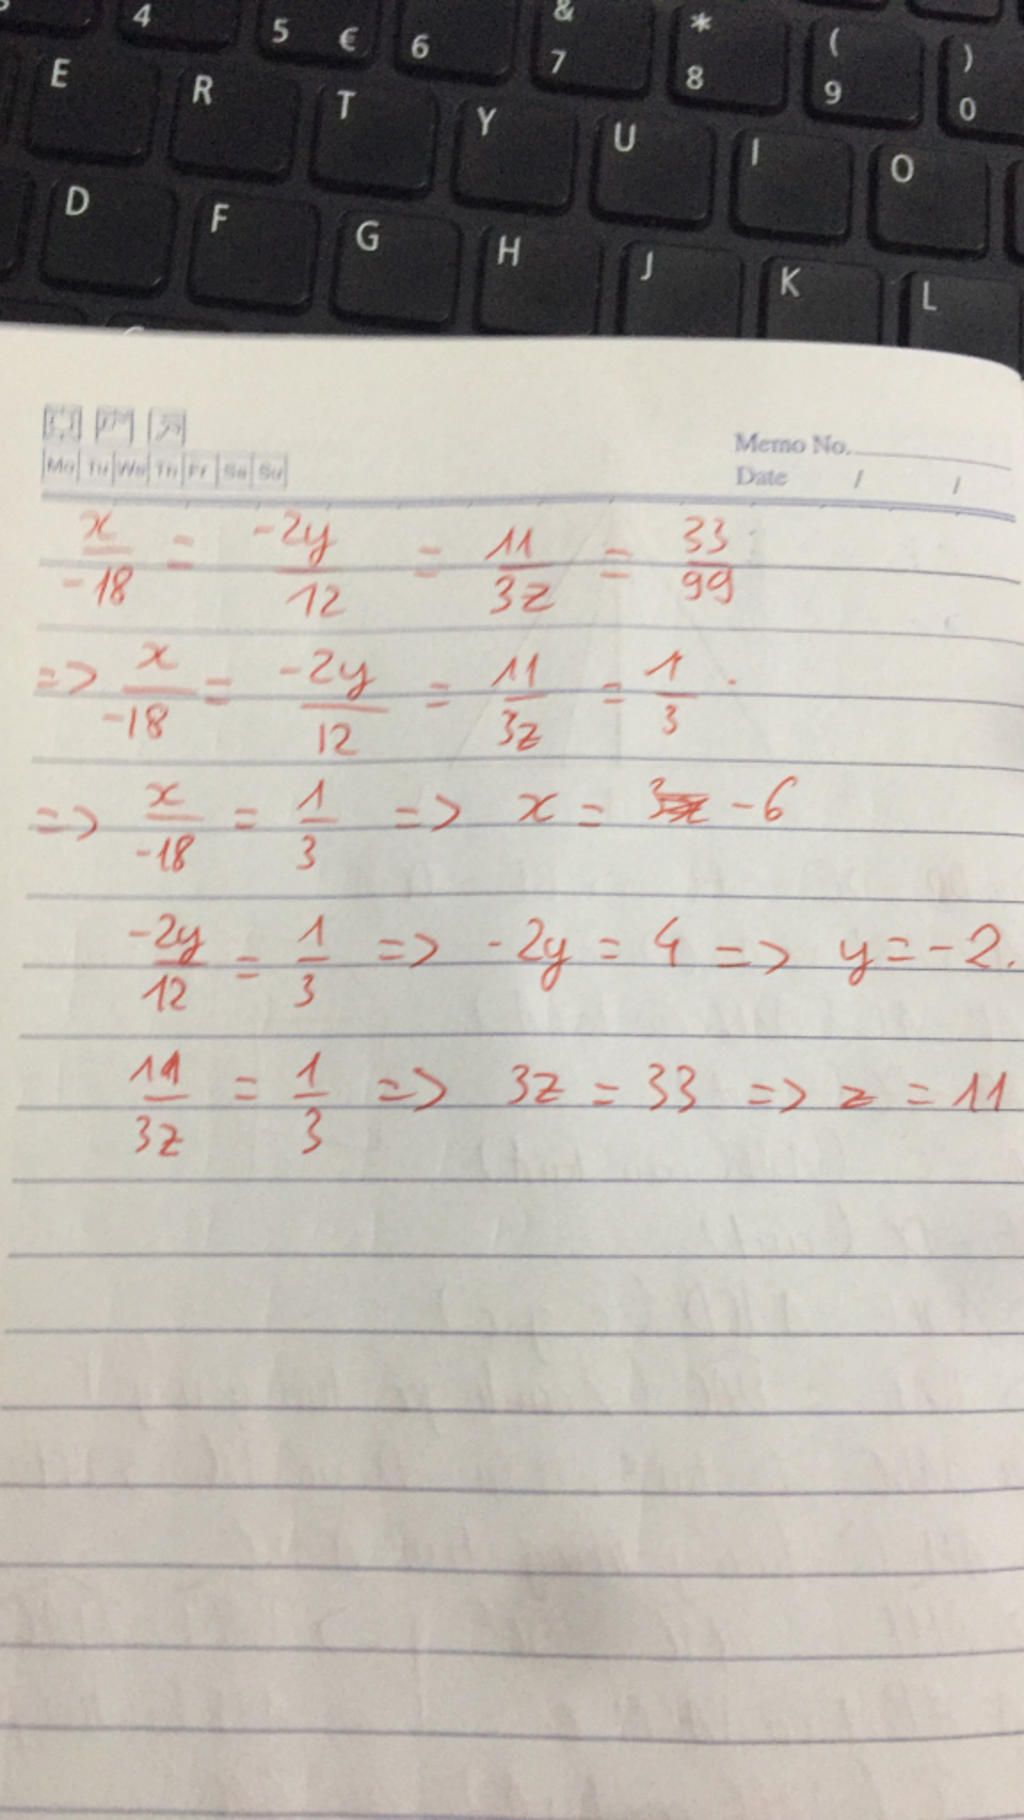 4 5 € 6 & 7 * 8 ( 9 ) 0
E R T Y U I O
D F G H J K L
Memo No.
Mo Tu We Th Fr Sa Su
Date / /
x/-18 = -2y/12 = 11/3z = 33/99
=> x/-18 = -2y/12 = 11/3z = 1/3.
=> x/-18 = 1/3 => x = -6
-2y/12 = 1/3 => -2y = 4 => y = -2.
11/3z = 1/3 => 3z = 33 => z = 11